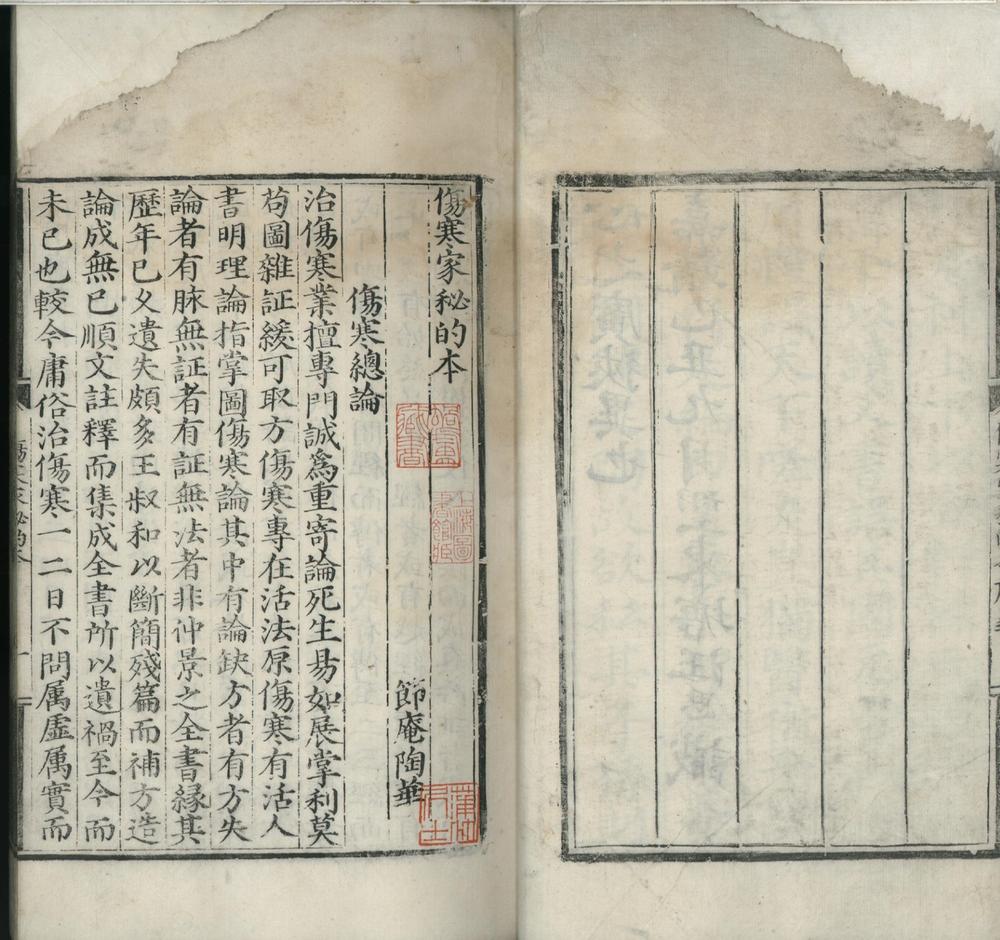 傷寒家秘的本
節庵陶華
傷寒總論
治傷寒業擅專門誠爲重寄論死生易如展掌利莫
苟圖雜証緩可取方傷寒專在活法原傷寒有活人
書明理論指掌圖傷寒論其中有論缺方者有方失
論者有脉無証者有証無法者非仲景之全書緣其
歷年已久遺失頗多王叔和以斷簡殘篇而補方造
論成無已順文註釋而集成全書所以遺禍至今而
未已也較今庸俗治傷寒一二日不問属虛属實而